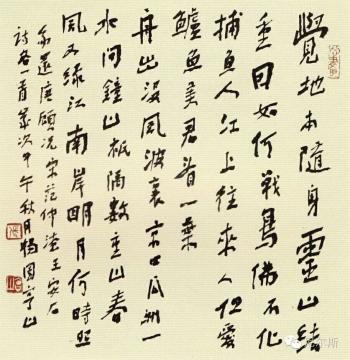 覺地本隨身靈山結
重因如何戰鳥佛不化
捕魚人江上往來人但愛
鱸魚美君看一葉
舟出没風波裏京口瓜洲一
水間鐘山祇隔數重山春
風又綠江南岸明月何時照
我還唐顧况宋范仲淹王安石
詩各一首歲次甲午秋月楊